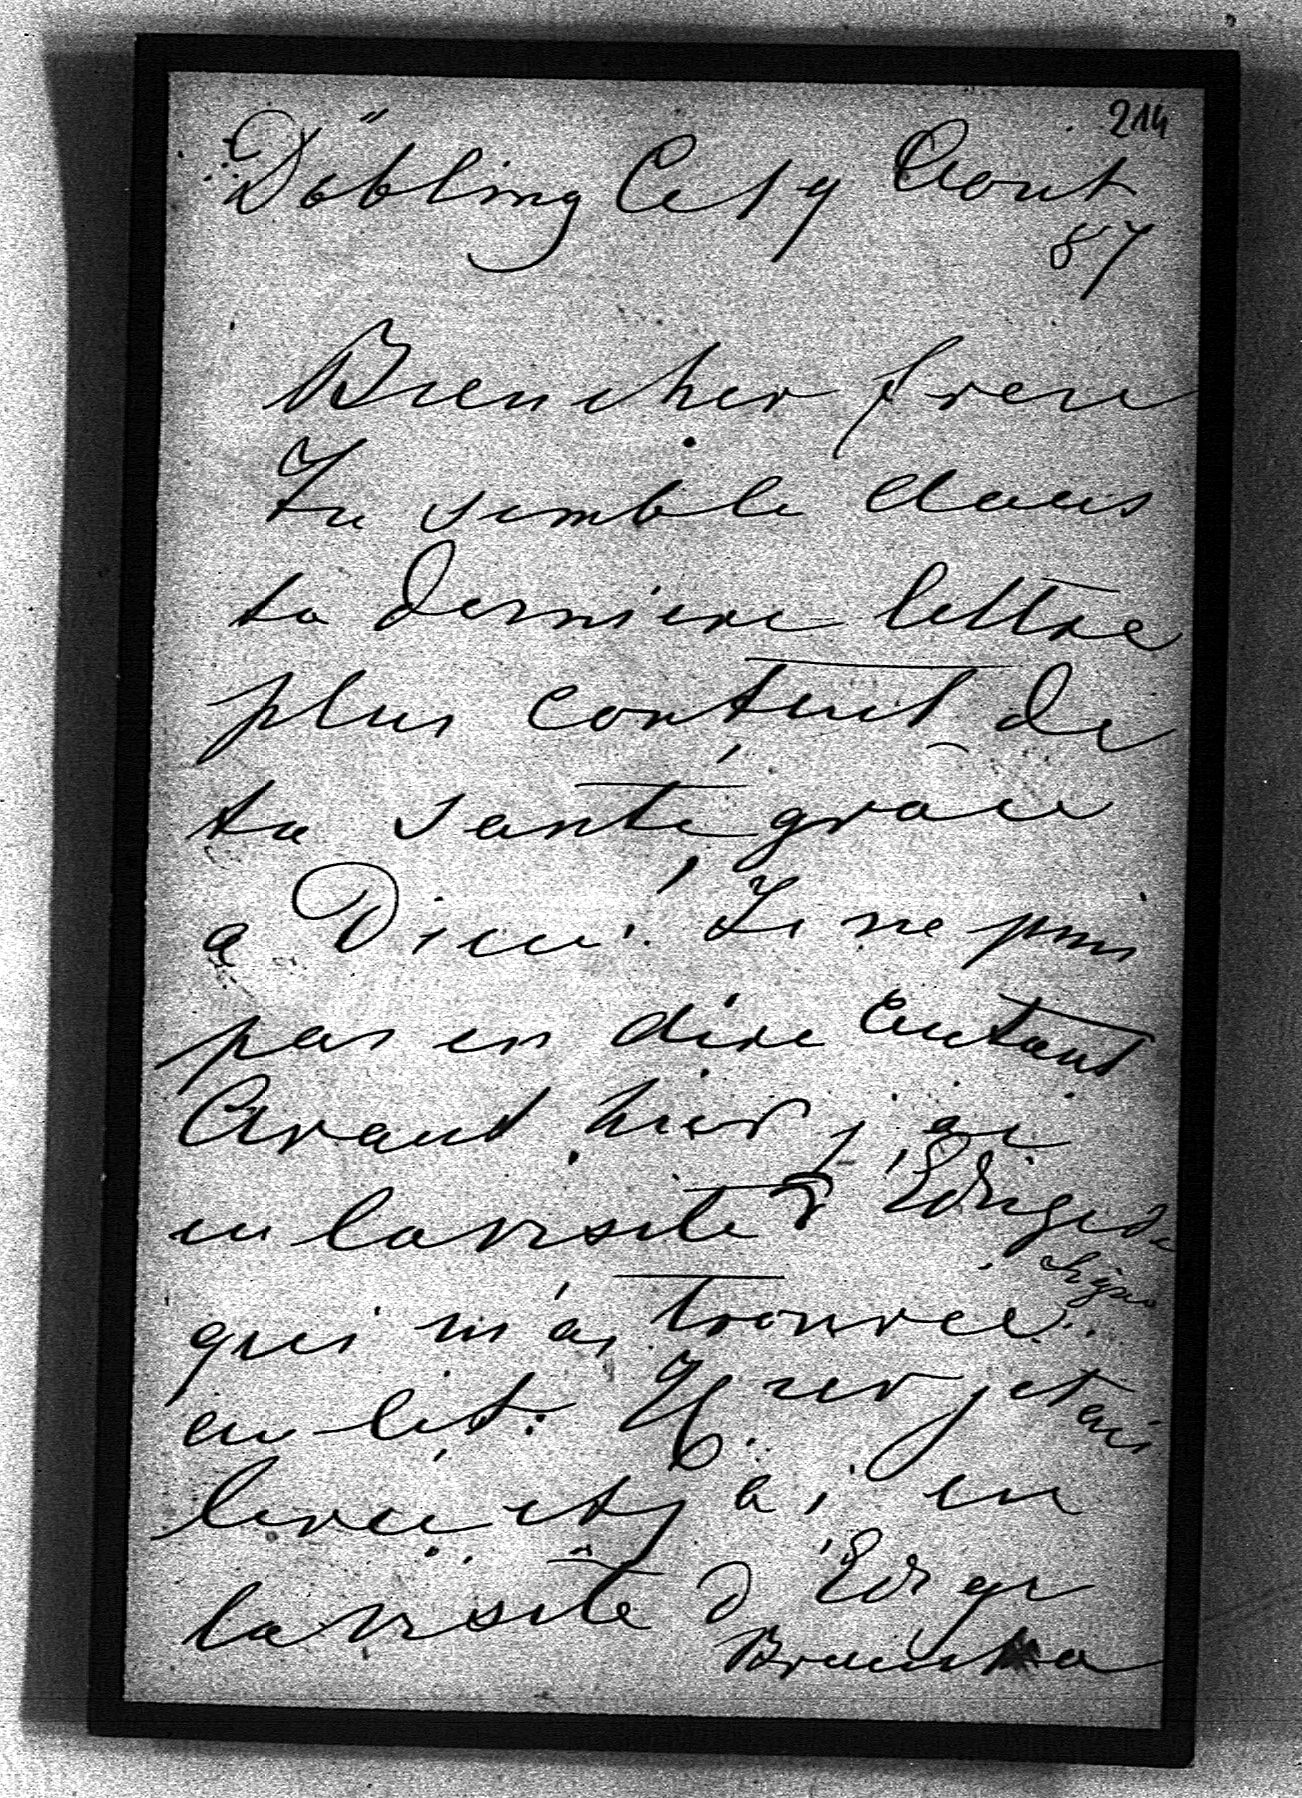 214
Döbling Ce 19 Aout
87
Bien cher frere
Tu semble dans
ta derniere lettre
plus content de
ta santé, grâce
a Dieu! Je ne puis
pas en dire autant
Avant hier j'ai
eu la visite d'Edvige de
Ligne
qui m'a, trouvee
au lit. Hier j'etais
levée et j'ai eu
la visite d'Edvige
Branicka